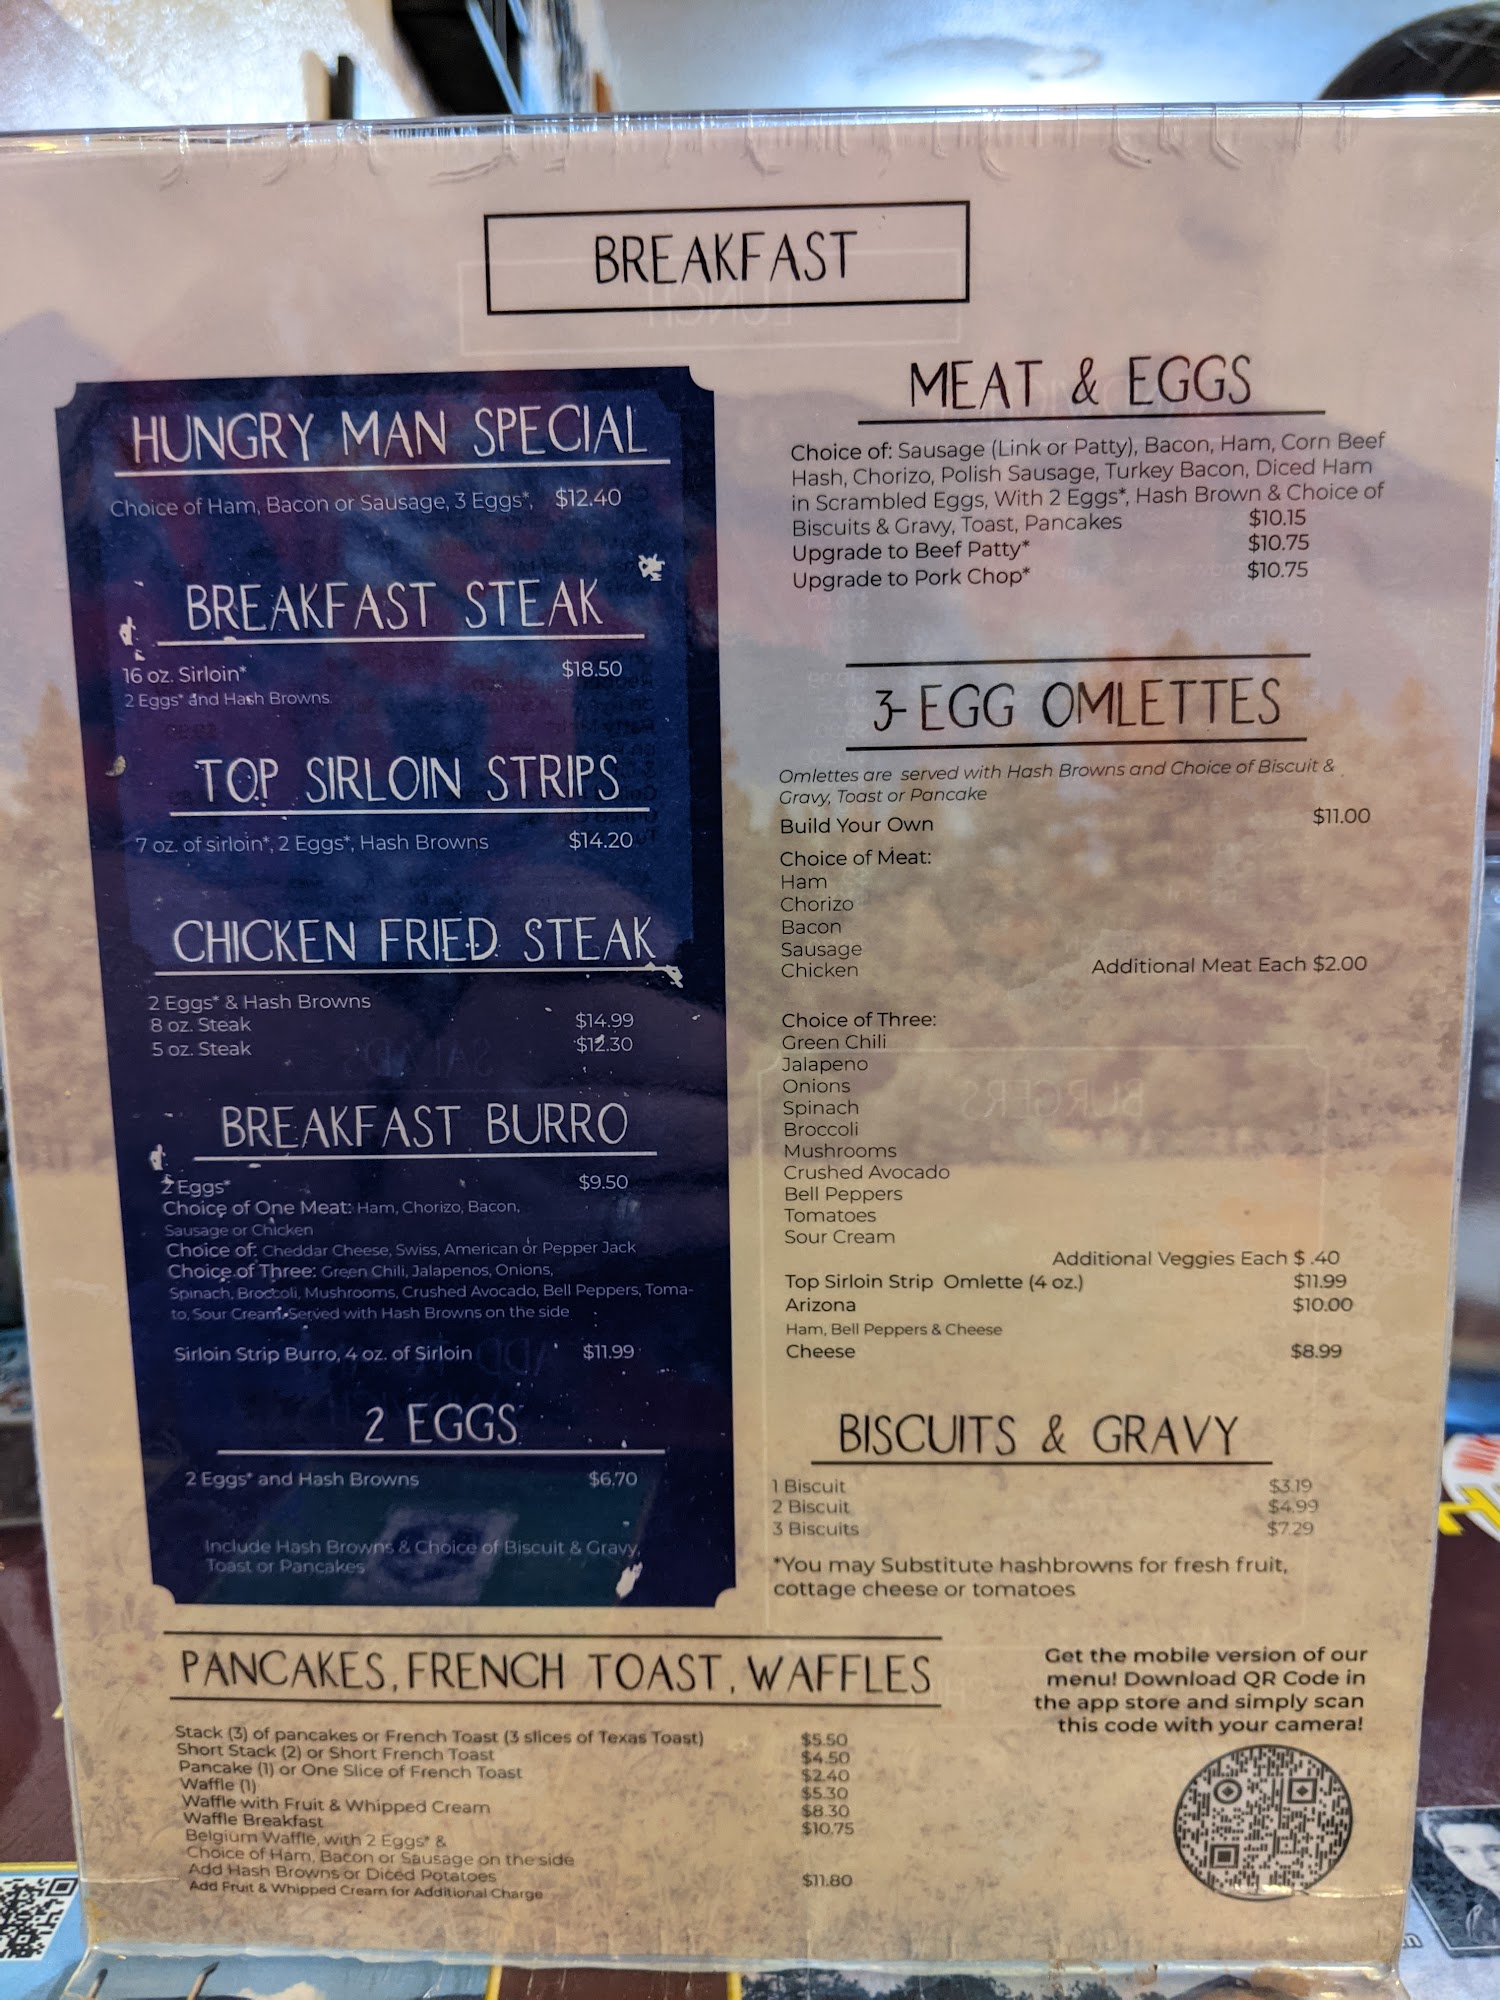 BREAKFAST
HUNGRY MAN SPECIAL
Choice of Ham, Bacon or Sausage, 3 Eggs*, $12.40
BREAKFAST STEAK
16 oz. Sirloin* $18.50
2 Eggs* and Hash Browns
TOP SIRLOIN STRIPS
7 oz. of sirloin*, 2 Eggs*, Hash Browns $14.20
CHICKEN FRIED STEAK
2 Eggs* & Hash Browns
8 oz. Steak $14.99
5 oz. Steak $12.30
BREAKFAST BURRO
2 Eggs* $9.50
Choice of One Meat: Ham, Chorizo, Bacon,
Sausage or Chicken
Choice of: Cheddar Cheese, Swiss, American or Pepper Jack
Choice of Three: Green Chili, Jalapenos, Onions,
Spinach, Broccoli, Mushrooms, Crushed Avocado, Bell Peppers, Toma-
to, Sour Cream. Served with Hash Browns on the side
Sirloin Strip Burro, 4 oz. of Sirloin $11.99
2 EGGS
2 Eggs* and Hash Browns $6.70
Include Hash Browns & Choice of Biscuit & Gravy,
Toast or Pancakes
MEAT & EGGS
Choice of: Sausage (Link or Patty), Bacon, Ham, Corn Beef
Hash, Chorizo, Polish Sausage, Turkey Bacon, Diced Ham
in Scrambled Eggs, With 2 Eggs*, Hash Brown & Choice of
Biscuits & Gravy, Toast, Pancakes $10.15
Upgrade to Beef Patty* $10.75
Upgrade to Pork Chop* $10.75
3-EGG OMLETTES
Omlettes are served with Hash Browns and Choice of Biscuit &
Gravy, Toast or Pancake
Build Your Own $11.00
Choice of Meat:
Ham
Chorizo
Bacon
Sausage
Chicken Additional Meat Each $2.00
Choice of Three:
Green Chili
Jalapeno
Onions
Spinach
Broccoli
Mushrooms
Crushed Avocado
Bell Peppers
Tomatoes
Sour Cream
Additional Veggies Each $ .40
Top Sirloin Strip Omlette (4 oz.) $11.99
Arizona $10.00
Ham, Bell Peppers & Cheese
Cheese $8.99
BISCUITS & GRAVY
1 Biscuit $3.19
2 Biscuit $4.99
3 Biscuits $7.29
*You may Substitute hashbrowns for fresh fruit,
cottage cheese or tomatoes
PANCAKES, FRENCH TOAST, WAFFLES
Stack (3) of pancakes or French Toast (3 slices of Texas Toast) $5.50
Short Stack (2) or Short French Toast $4.50
Pancake (1) or One Slice of French Toast $2.40
Waffle (1) $5.30
Waffle with Fruit & Whipped Cream $8.30
Waffle Breakfast $10.75
Belgium Waffle, with 2 Eggs* &
Choice of Ham, Bacon or Sausage on the side
Add Hash Browns or Diced Potatoes $11.80
Add Fruit & Whipped Cream for Additional Charge
Get the mobile version of our
menu! Download QR Code in
the app store and simply scan
this code with your camera!